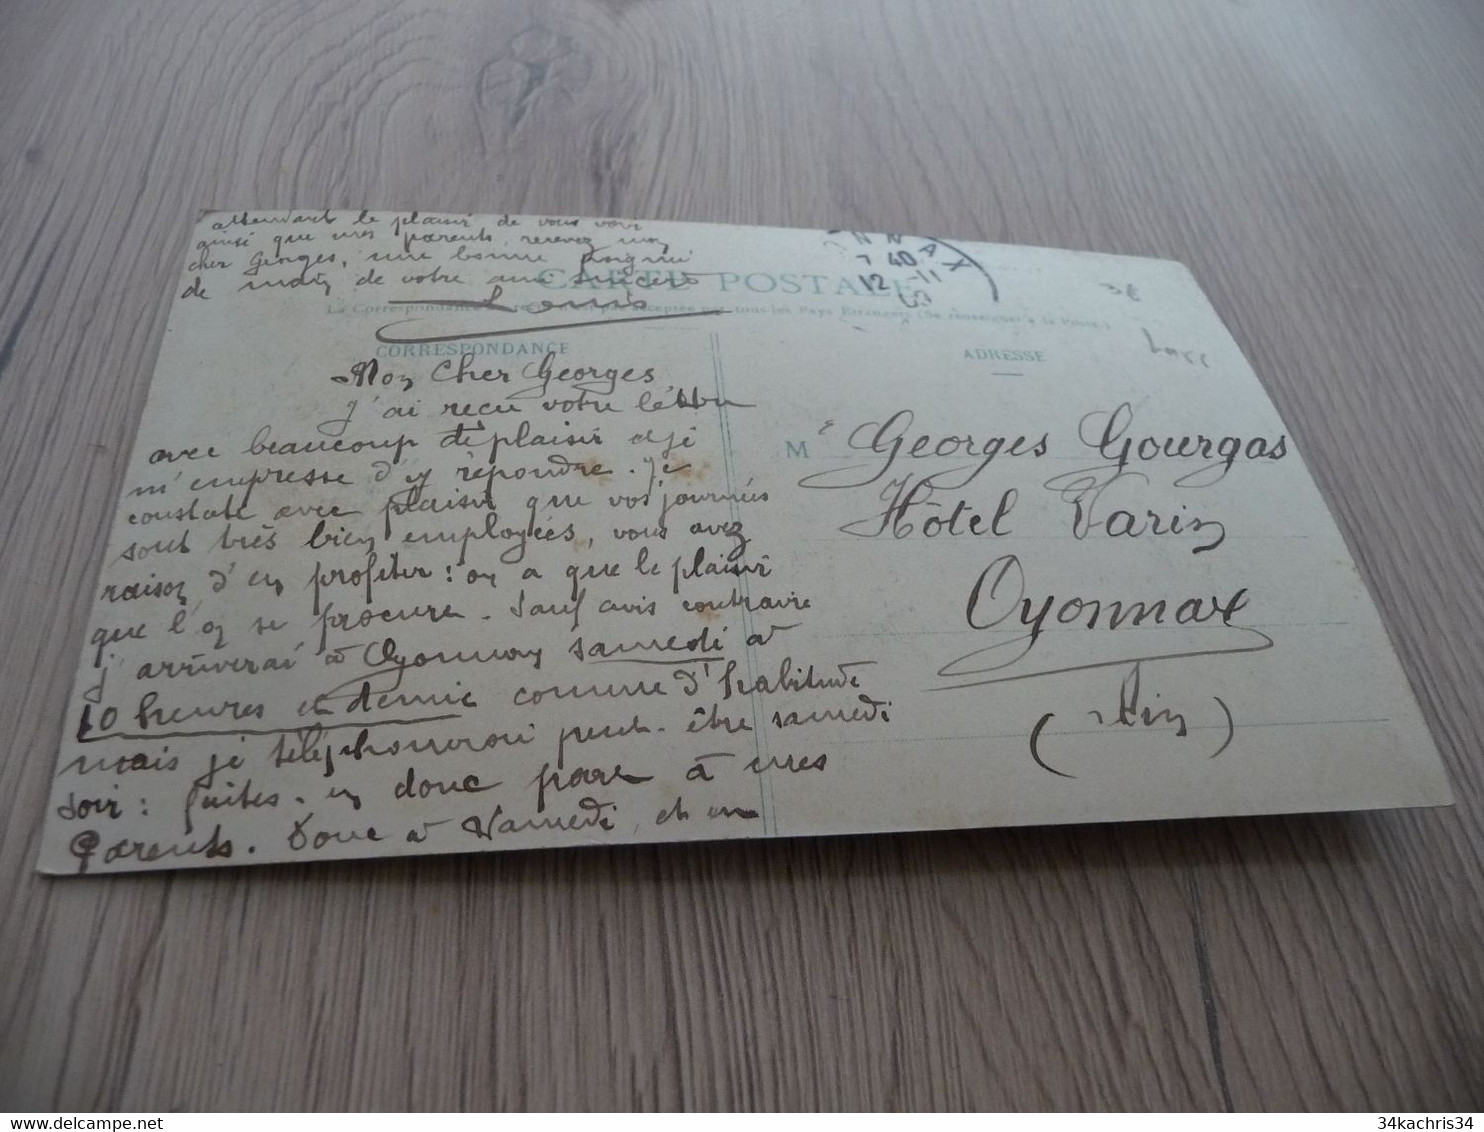 attendant le plaisir de vous voir
ainsi que mes parents, recevez mon
cher Georges, une bonne poignée
de main de votre ami sincère
Louis
CARTE POSTALE
La Correspondance par tous les Pays Etrangers (Se renseigner à la Poste.)
NNAX
7 40
12 -11
CORRESPONDANCE
Mon Cher Georges
J'ai reçu votre lettre
avec beaucoup de plaisir et je
m'empresse d'y répondre. Je
constate avec plaisir que vos journées
sont très bien employées, vous avez
raison d'en profiter : on a que le plaisir
que l'on se procure. Sauf avis contraire
j'arriverai à Oyonnax samedi à
10 heures et demie comme d'habitude
mais je téléphonerai peut-être samedi
soir : faites-en donc part à mes
Parents. Donc à Samedi, et en
ADRESSE
3€
M r Georges Gourgas
Hôtel Varin
Oyonnax
(Ain)
34kachris34